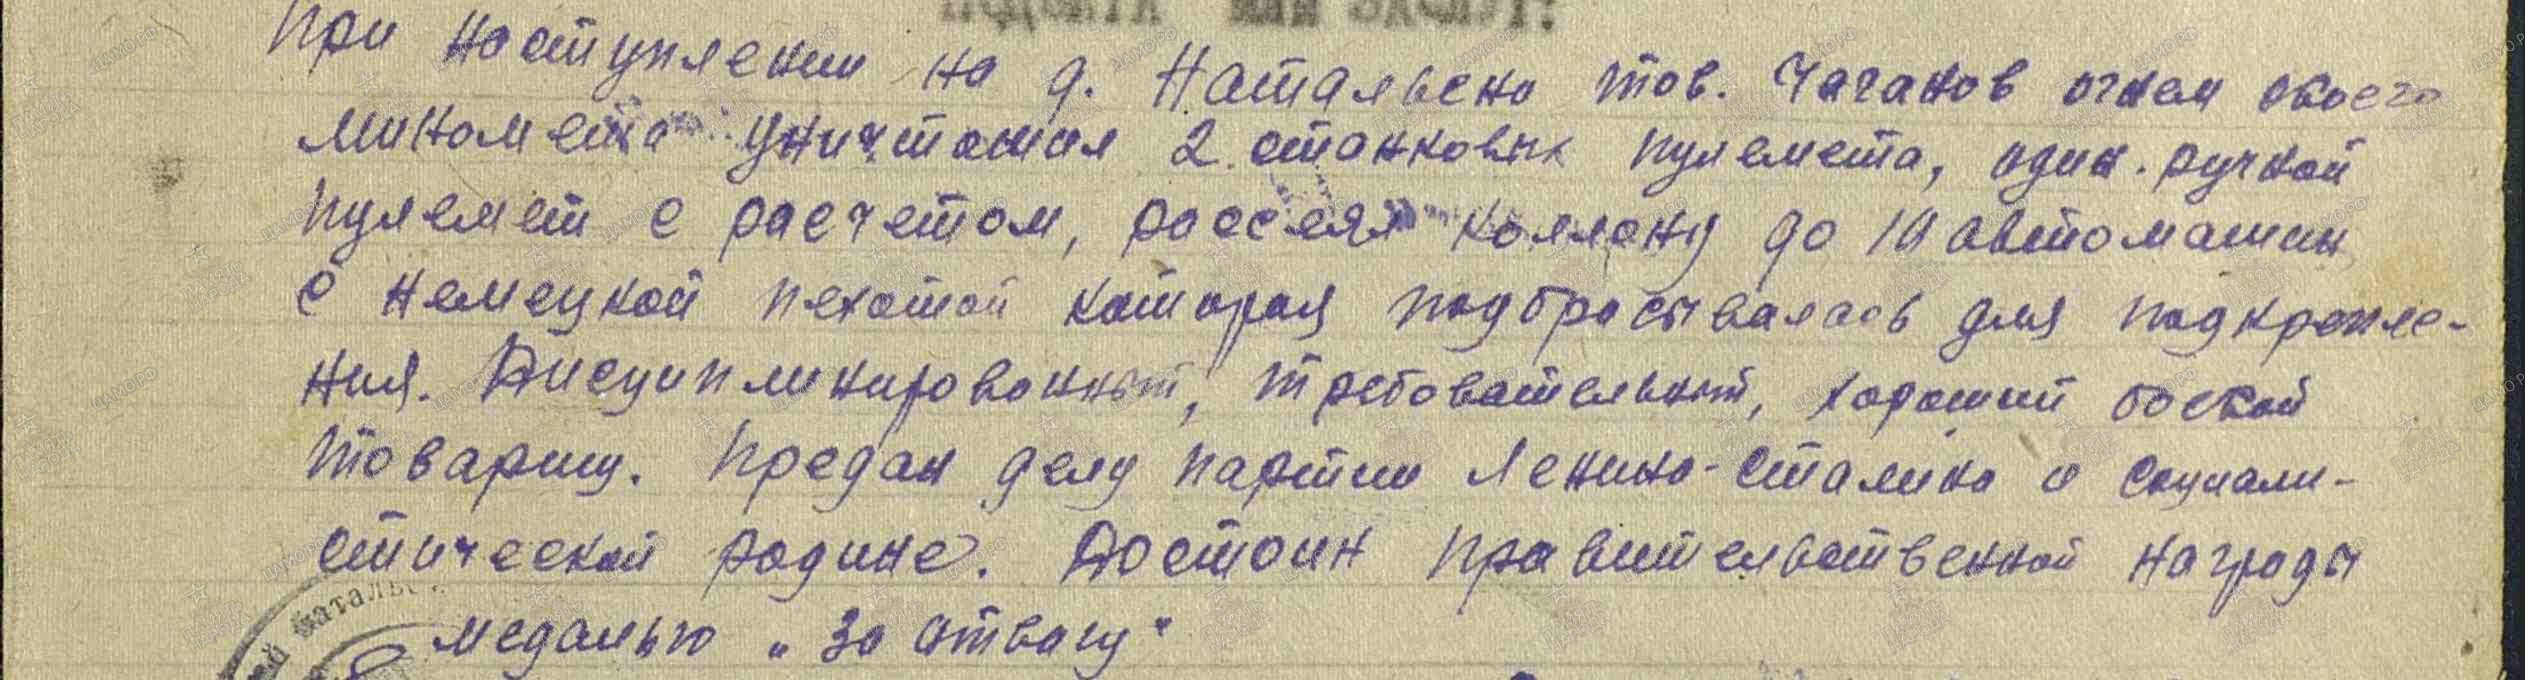 При наступлении на д. Натальено тов. Чаганов огнем своего
миномета уничтожил 2 станковых пулемета, один ручной
пулемет с расчетом, рассеял коллону до 10 автомашин
с немецкой пехотой которая подбрасывалась для подкрепле-
ния. Дисциплинированный, требовательный, хороший боевой
товарищ. Предан делу партии Ленина-Сталина и социали-
стической родине. Достоин правительственной награды
медалью „За отвагу"